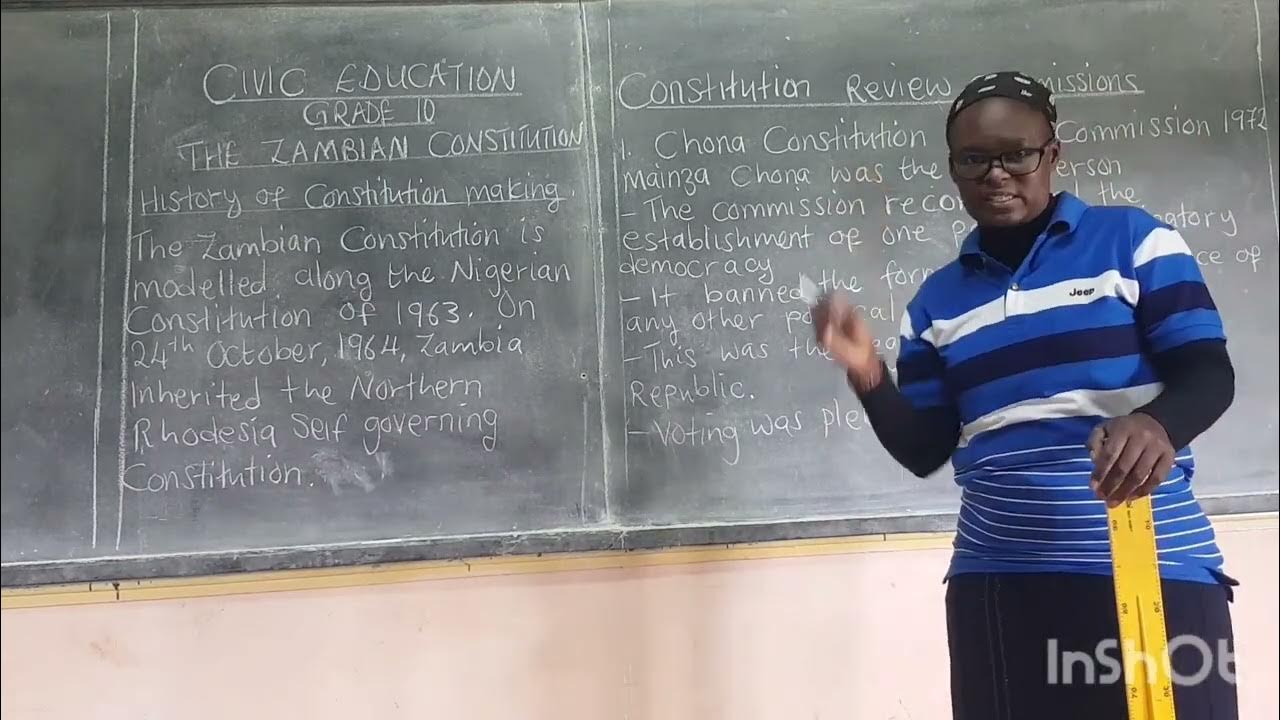 CIVIC EDUCATION
GRADE 10
THE ZAMBIAN CONSTITUTION
History of Constitution making.
The Zambian Constitution is
modelled along the Nigerian
Constitution of 1963. On
24th October, 1964, Zambia
Inherited the Northern
Rhodesia Self governing
Constitution.
Constitution Review
1. Chona Constitution Commission 1972
Mainza Chona was the
- The commission the
establishment of one
democracy
- It banned the of
any other
- This was the
Republic.
- Voting was
Jeep
InShOt